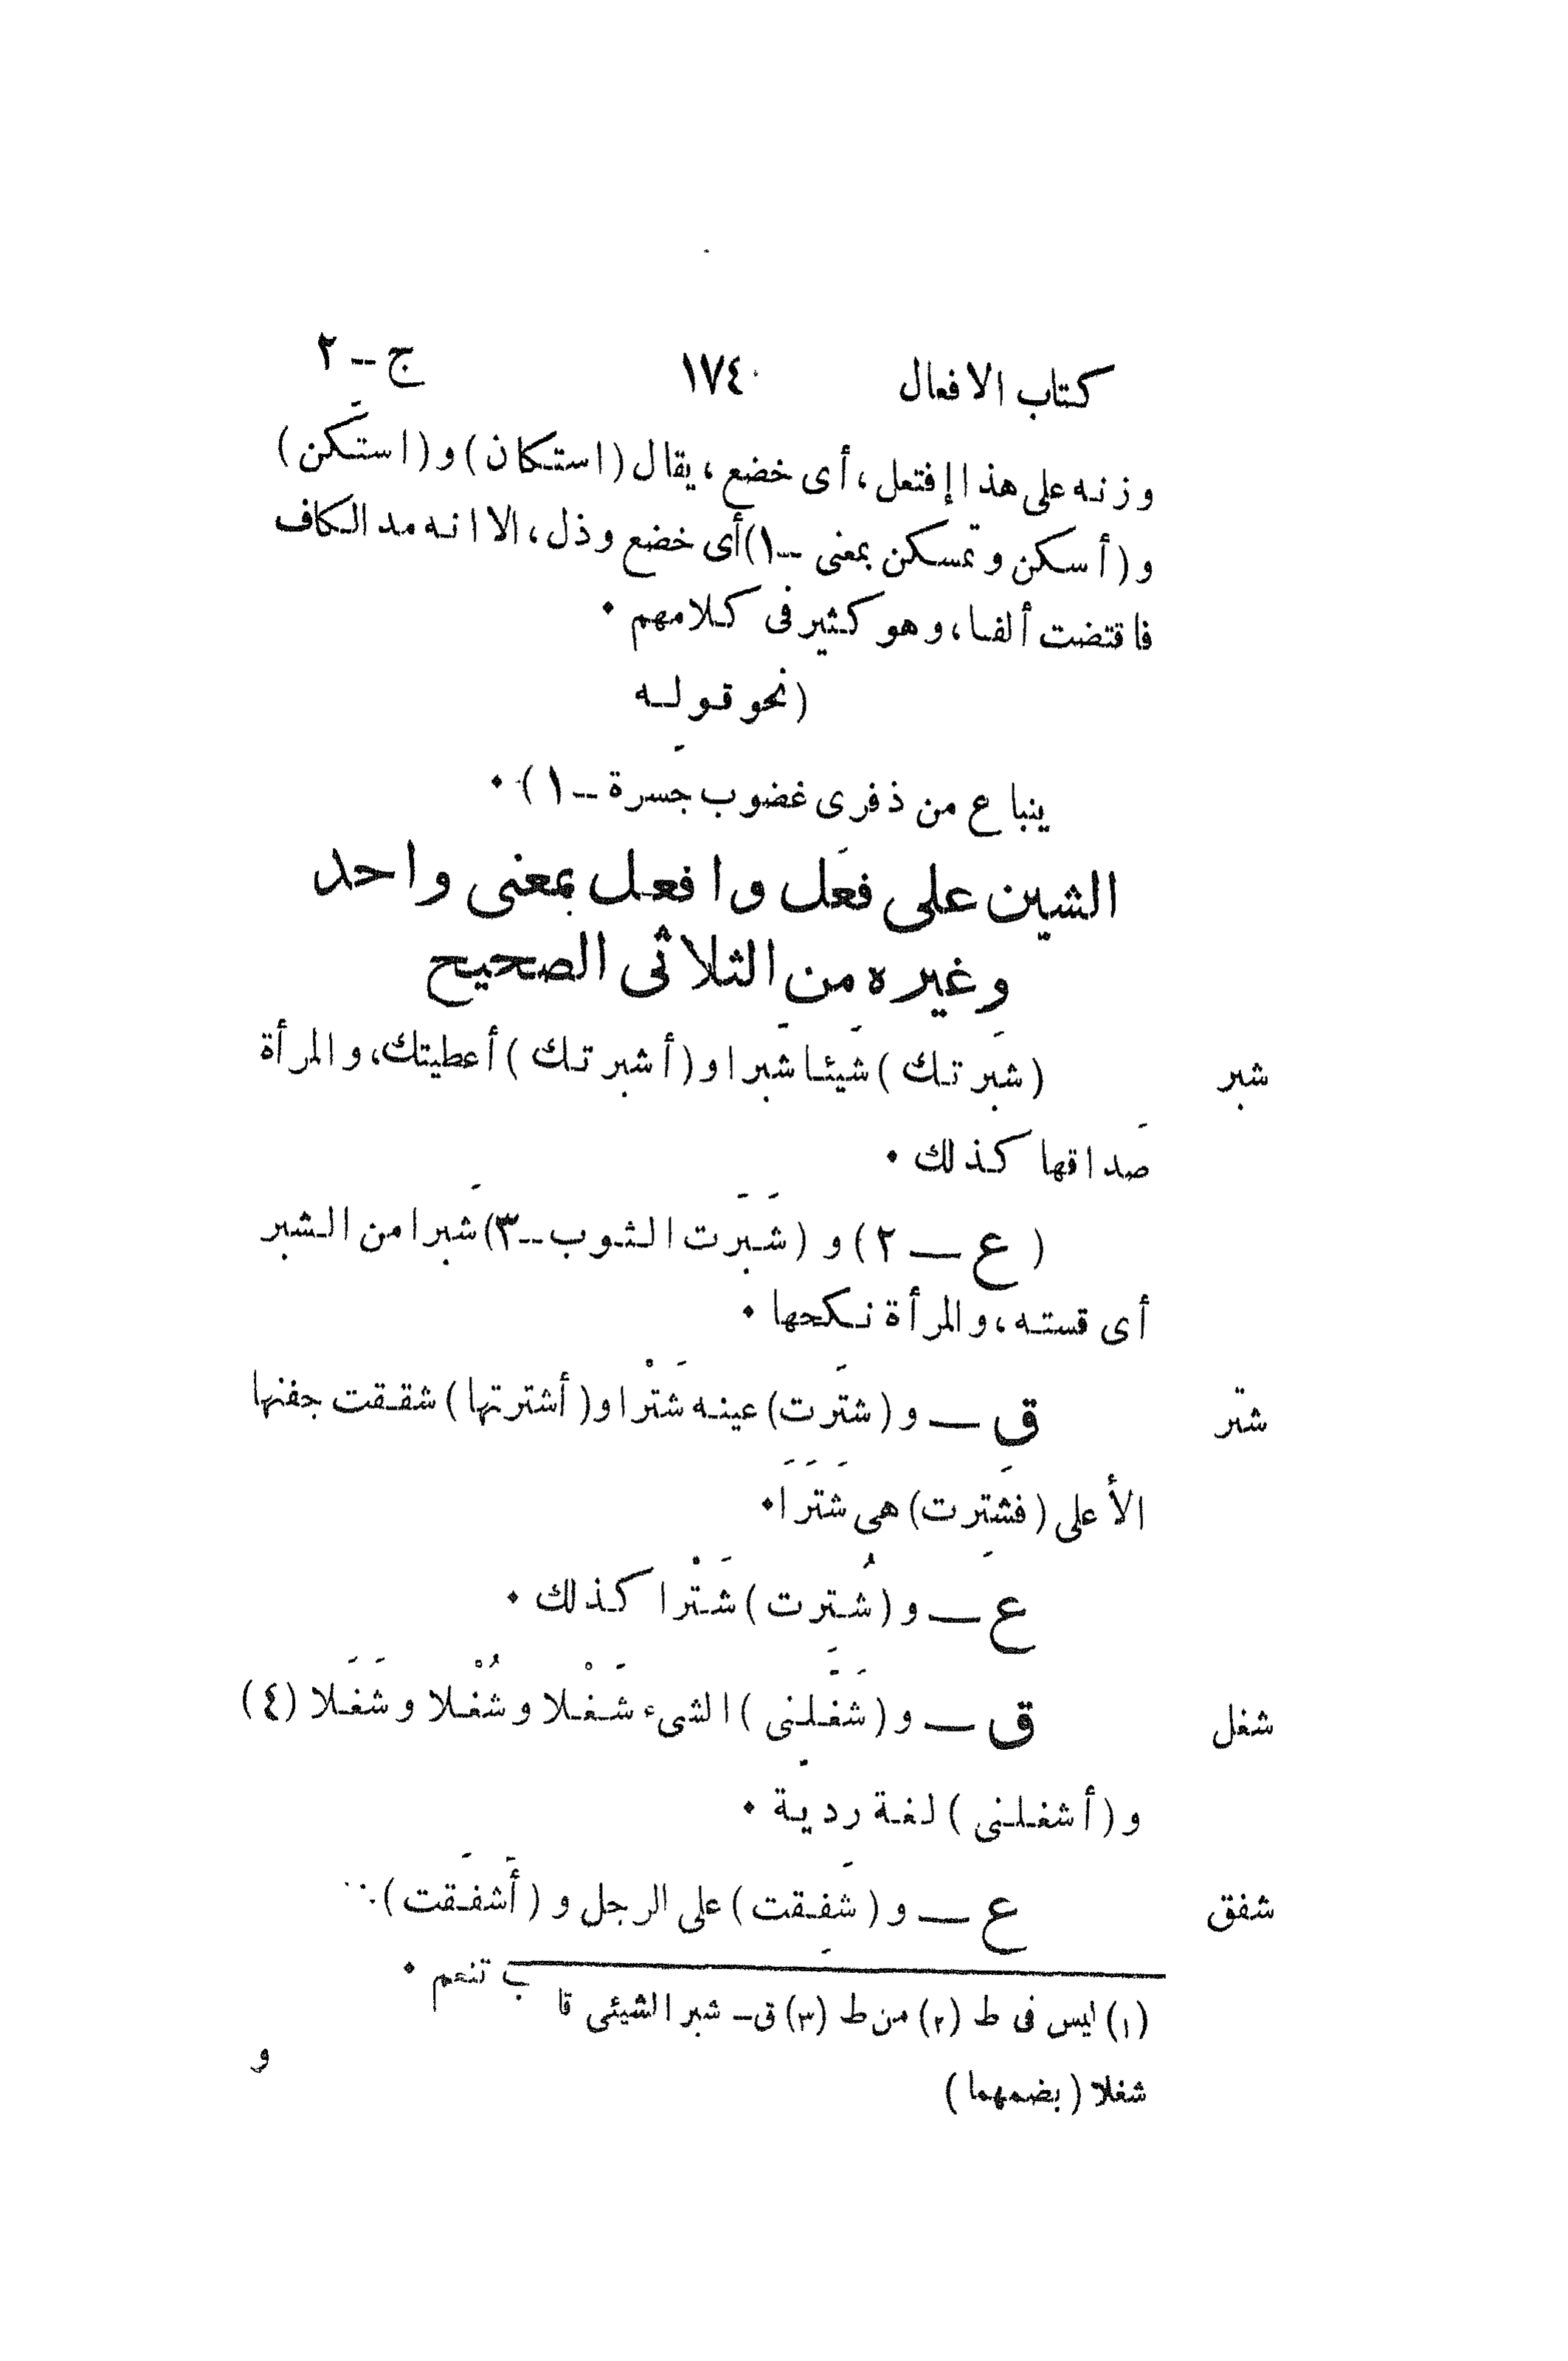 كتاب الافعال ١٧٤ ج -- ٢
وزنه على هذا إفتعل، أى خضع، يقال (استكان) و (استَكن)
و (أسكن وتمسكن بمعنى --١) أى خضع وذل، الا انه مد الكاف
فاقتضت ألفا، وهو كثير فى كلامهم ٠
(نحو قوله
ينباع من ذفرى غضوب جَسرة --١) ٠
الشين على فعَل وافعل بمعنى واحد
وغيره من الثلاثى الصحيح
شبر (شبَرتك) شَيئا شَبرا و (أشبرتك) أعطيتك، والمرأة
صَداقها كذلك ٠
(ع — ٢) و (شَبَرت الثوب --٣) شَبرا من الشبر
أى قسته، والمرأة نكحها ٠
شتر ق — و (شتَرت) عينه شَتْرا و (أشترتها) شققت جفنها
الأعلى (فشَتِرت) هى شَتَرَا ٠
ع — و (شُترت) شَتْرا كذلك ٠
شغل ق — و (شَغَلَنى) الشىء شَغْلا وشُغْلا وشَغَلا (٤)
و (أشغلنى) لغة ردية ٠
شفق ع — و (شَفِقت) على الرجل و (أَشفَقت)
(١) ليس فى ط (٢) من ط (٣) ق -- شبر الشيئى قا
شغلا (بضمهما)
و